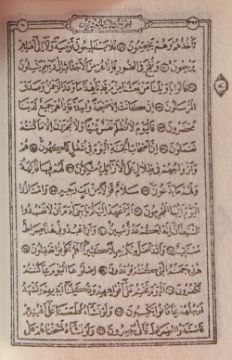 تَأْخُذُهُمْ وَهُمْ يَخِصِّمُونَ فَلَا يَسْتَطِيعُونَ تَوْصِيَةً وَلَا إِلَى أَهْلِهِمْ
يَرْجِعُونَ وَنُفِخَ فِي الصُّورِ فَإِذَا هُمْ مِنَ الْأَجْدَاثِ إِلَى رَبِّهِمْ يَنْسِلُونَ
قَالُوا يَا وَيْلَنَا مَنْ بَعَثَنَا مِنْ مَرْقَدِنَا هَذَا مَا وَعَدَ الرَّحْمَنُ وَصَدَقَ
الْمُرْسَلُونَ إِنْ كَانَتْ إِلَّا صَيْحَةً وَاحِدَةً فَإِذَا هُمْ جَمِيعٌ لَدَيْنَا
مُحْضَرُونَ فَالْيَوْمَ لَا تُظْلَمُ نَفْسٌ شَيْئًا وَلَا تُجْزَوْنَ إِلَّا مَا كُنْتُمْ
تَعْمَلُونَ إِنَّ أَصْحَابَ الْجَنَّةِ الْيَوْمَ فِي شُغُلٍ فَاكِهُونَ هُمْ
وَأَزْوَاجُهُمْ فِي ظِلَالٍ عَلَى الْأَرَائِكِ مُتَّكِئُونَ لَهُمْ فِيهَا فَاكِهَةٌ
وَلَهُمْ مَا يَدَّعُونَ سَلَامٌ قَوْلًا مِنْ رَبٍّ رَحِيمٍ وَامْتَازُوا
الْيَوْمَ أَيُّهَا الْمُجْرِمُونَ أَلَمْ أَعْهَدْ إِلَيْكُمْ يَا بَنِي آدَمَ أَنْ لَا تَعْبُدُوا
الشَّيْطَانَ إِنَّهُ لَكُمْ عَدُوٌّ مُبِينٌ وَأَنِ اعْبُدُونِي هَذَا صِرَاطٌ
مُسْتَقِيمٌ وَلَقَدْ أَضَلَّ مِنْكُمْ جِبِلًّا كَثِيرًا أَفَلَمْ تَكُونُوا تَعْقِلُونَ
هَذِهِ جَهَنَّمُ الَّتِي كُنْتُمْ تُوعَدُونَ اصْلَوْهَا الْيَوْمَ بِمَا كُنْتُمْ
تَكْفُرُونَ الْيَوْمَ نَخْتِمُ عَلَى أَفْوَاهِهِمْ وَتُكَلِّمُنَا أَيْدِيهِمْ وَتَشْهَدُ
أَرْجُلُهُمْ بِمَا كَانُوا يَكْسِبُونَ وَلَوْ نَشَاءُ لَطَمَسْنَا عَلَى أَعْيُنِهِمْ
فَاسْتَبَقُوا الصِّرَاطَ فَأَنَّى يُبْصِرُونَ وَلَوْ نَشَاءُ لَمَسَخْنَاهُمْ عَلَى